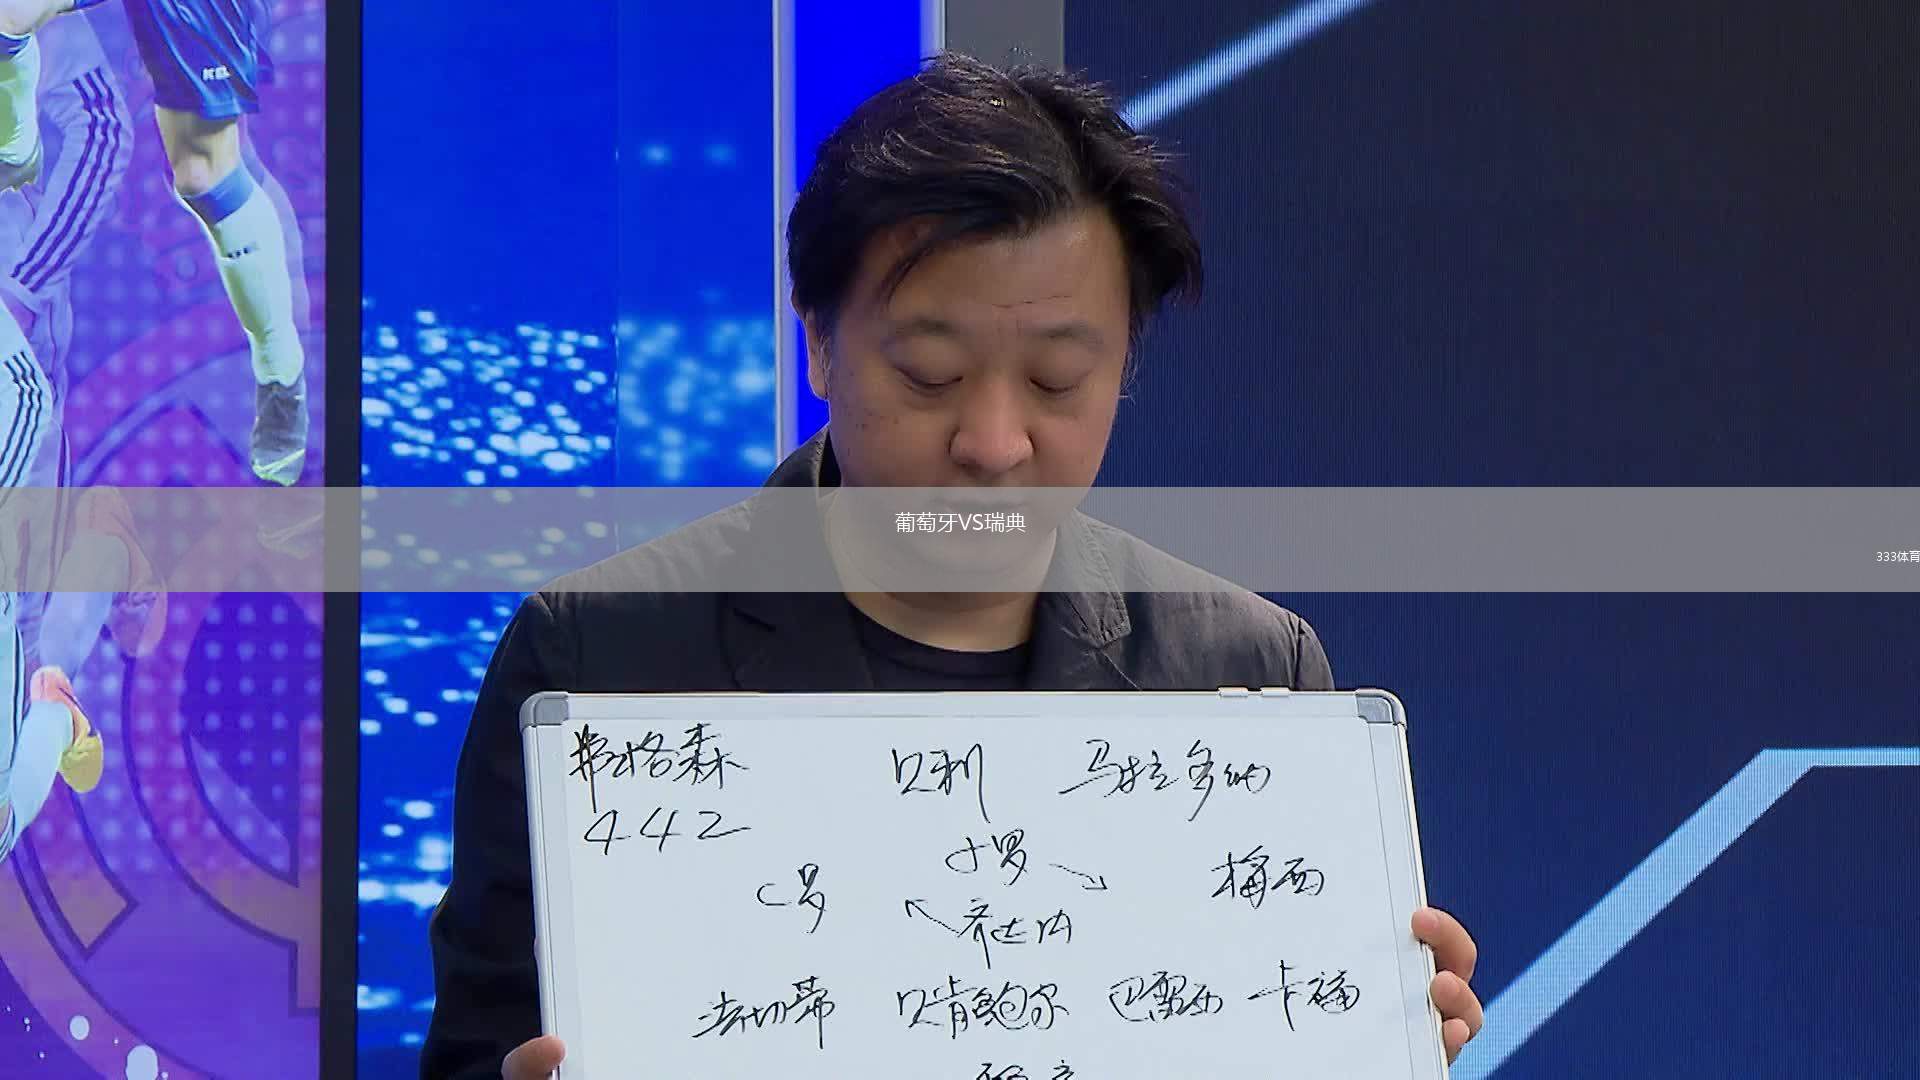 葡萄牙VS瑞典
333体育
弗格森 贝利 马拉多纳
442
小罗
C罗 梅西
齐达内
法切蒂 贝肯鲍尔 巴雷西 卡福